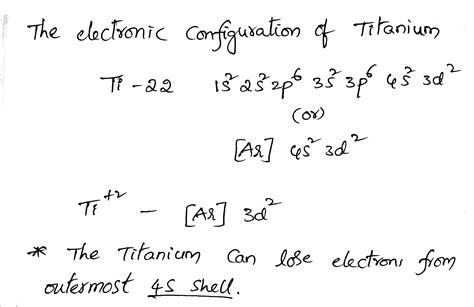 The electronic configuration of Titanium
Ti - 22 1s² 2s² 2p⁶ 3s² 3p⁶ 4s² 3d²
(or)
[Ar] 4s² 3d²
Ti⁺² - [Ar] 3d²
* The Titanium can lose electrons from
outermost 4S shell.